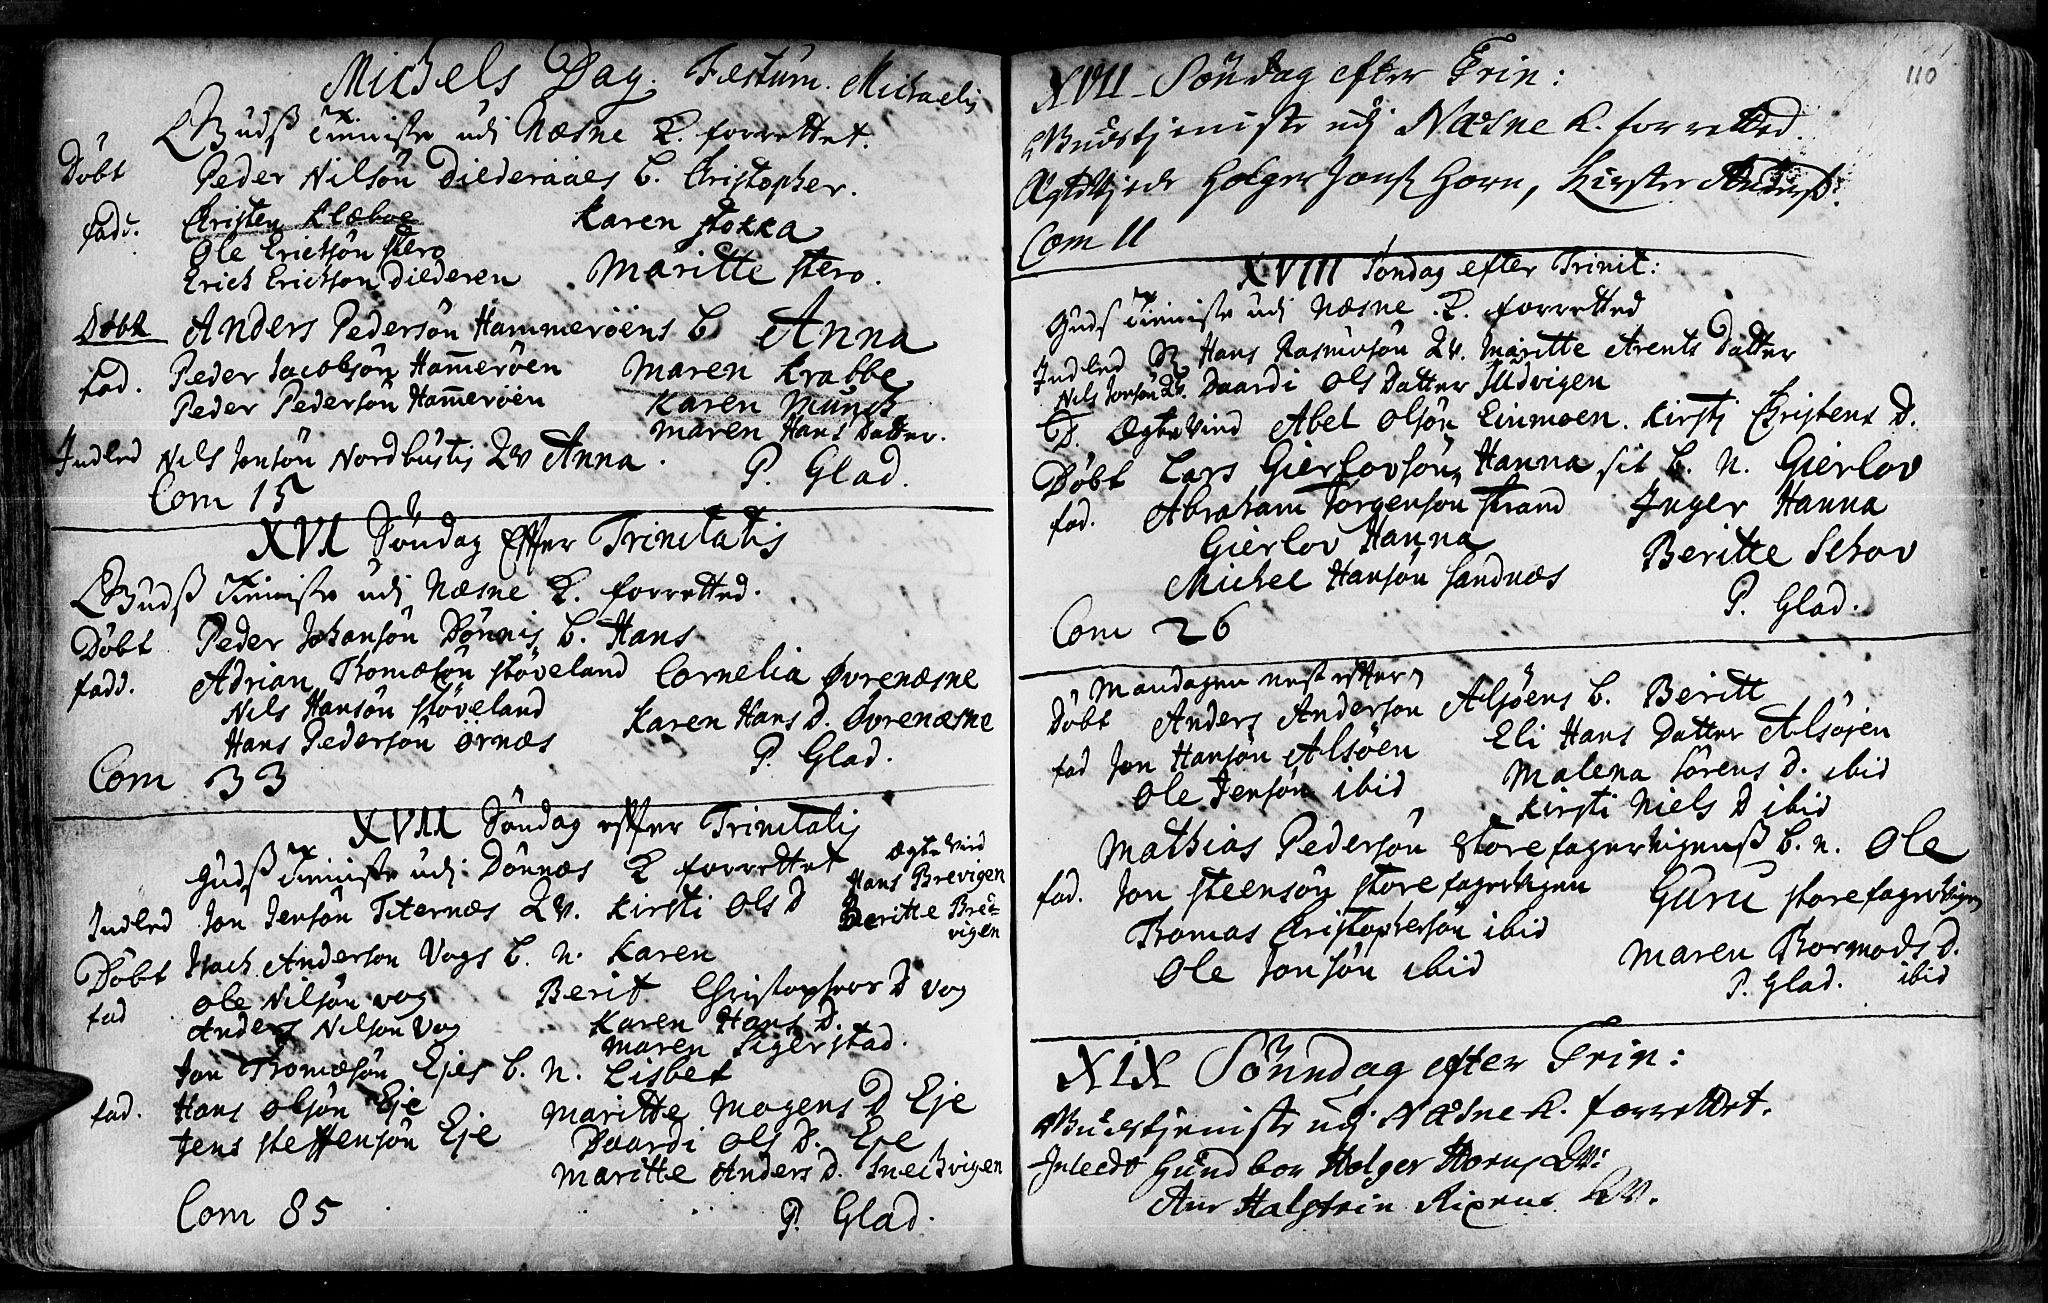 Michels Dag. Festum. Michaelis
Gudß Tieniste udj Næsne K. forrettet.
Döbt Peder Nilsön Diederaaes b. Christopher.
fadd. Christen Klæboe Karen Stokka
Ole Erichsön Stero
Erich Erichson Diederen Maritte Stero.
Döbt Anders Pedersön Hammeröens b Anna
fad. Peder Jacobsön Ham̄eröen Maren Krabbe
Peder Pederson Ham̄eröen Karen Munch
Maren Hans Datter.
Indled Nils Jonsön Nordbustis Qv Anna. P. Glad.
Com 15
XVI Söndag Effter Trinitatis
Gudß Tieniste udj Næsne K. forretted.
Döbt Peder Johansön Dönnis b. Hans
fadd. Adrian Thomæsön Stöveland Cornelia Øvrenæsne
Nils Hansön Stöveland Karen Hans D. Øvrenæsne
Hans Pedersön Örnæs P. Glad.
Com 33
XVII Söndag effter Trinitatis
Gudß Tieniste udj Dönnæs K forrettet ægte Vied
Hans Brevigen
Indled Jon Jensön Titernæs Qv. Kirsti Ols D Beritte Bre-
vigen
Döbt Isach Anderson Vogs b. n. Karen
fad Ole Nilsön Vog Berit Christophers D Vog
Anders Nilson Vog Karen Hans D.
Maren Sigerstad.
Jon Thomæsön Ejes b. n. Lisbet
fad. Hans Olsön Eje Maritte Mogens D Eje
Jens Steffensön Eje Daardi Ols D. Eje
Maritte Anders D. Sneckvigen
Com 85 P. Glad.
110
XVII Söndag efter Trin:
Gudstjeniste udj Næsne K. forretted.
Ægteviede Holger Jonß Horn, Kirsten Anderß:
Com 11
XVIII Söndag efter Trinit:
Guds Tieniste udj Næsne K. forretted
Indled Hans Rasmusön Qv. Maritte Arents Datter
Nils Jonsön Qv. Daardi Ols Datter Hudvigen
D. Ægte Vied Abel Olsön Einmoen. Kirsti Christens D.
Döbt Lars Gierlovsön Hanna sit b. n. Gierlov
fad. Abraham Jörgensön Strand Inger Hanna
Gierlov Hanna Beritte Schov
Michel Hansön Sandnæs P. Glad.
Com 26
Mandagen nest efter
Döbt Anders Anderson Alsöens b. Beritt
fad Jon Hansön Alsöen Eli Hans Datter Alsöjen
Ole Jensön ibid Malena Sörens D. ibid
Kirsti Niels D ibid
Mathias Pedersön Storefagervigenß b. n. Ole
fad. Jon Steensön Storefagervigen Guru Storefagervigen
Thomas Christophersön ibid Maren Thormods D.
Ole Jonsön ibid P. Glad. ibid
XIX Sönndag efter Trin:
Gudstjeniste udj Næsne K. forrettet.
Inleedt Gundbor Holger Horns Qv:
Ane Halstein Rixens Qv.